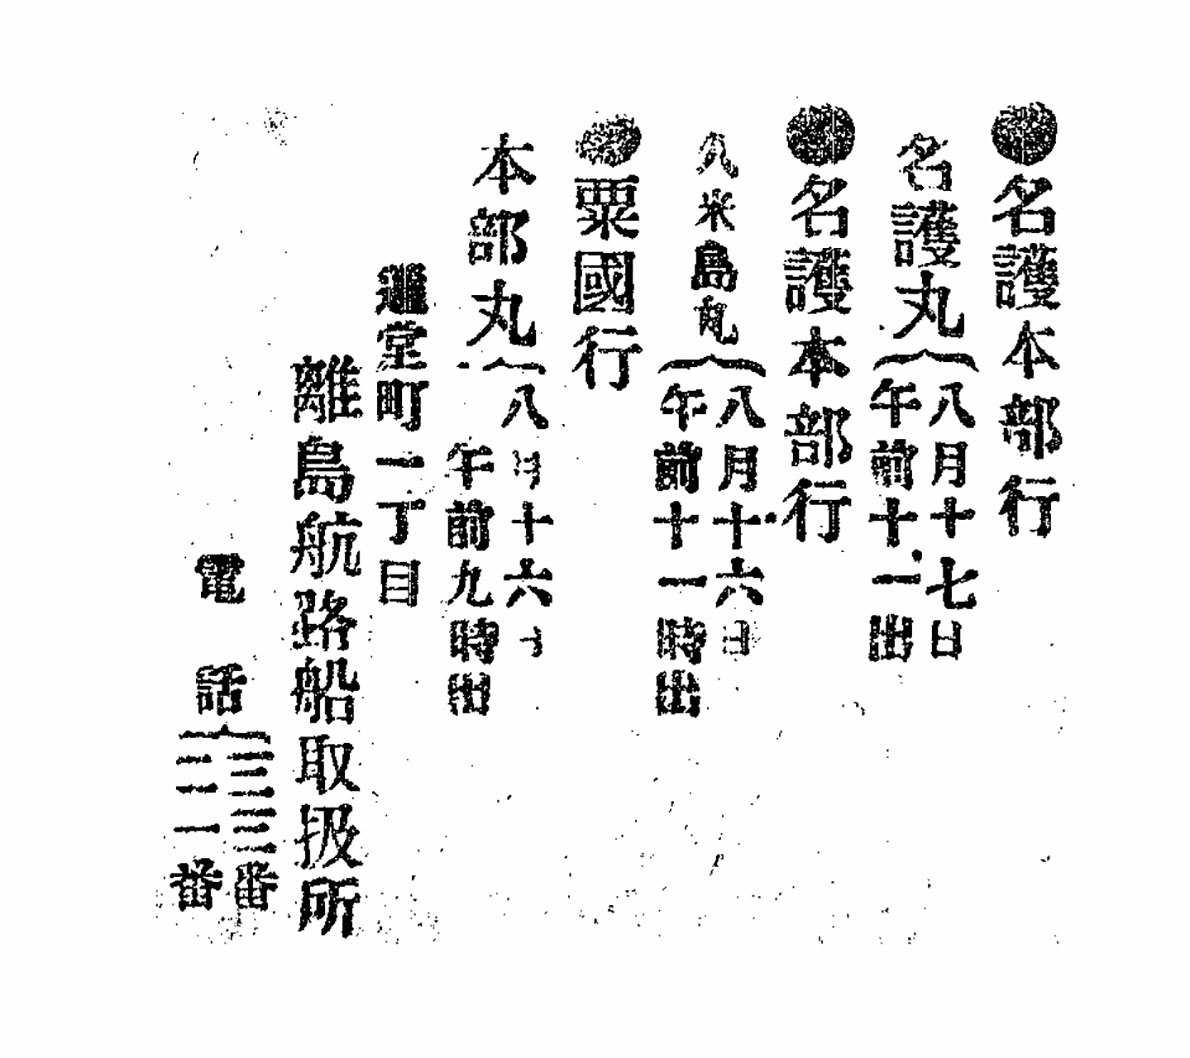 ●名護本部行
名護丸
八月十七日
午前十一出
●名護本部行
久米島丸
八月十六日
午前十一時出
●粟國行
本部丸
八月十六日
午前九時出
通堂町一丁目
離島航路船取扱所
電話
三三番
二二一番